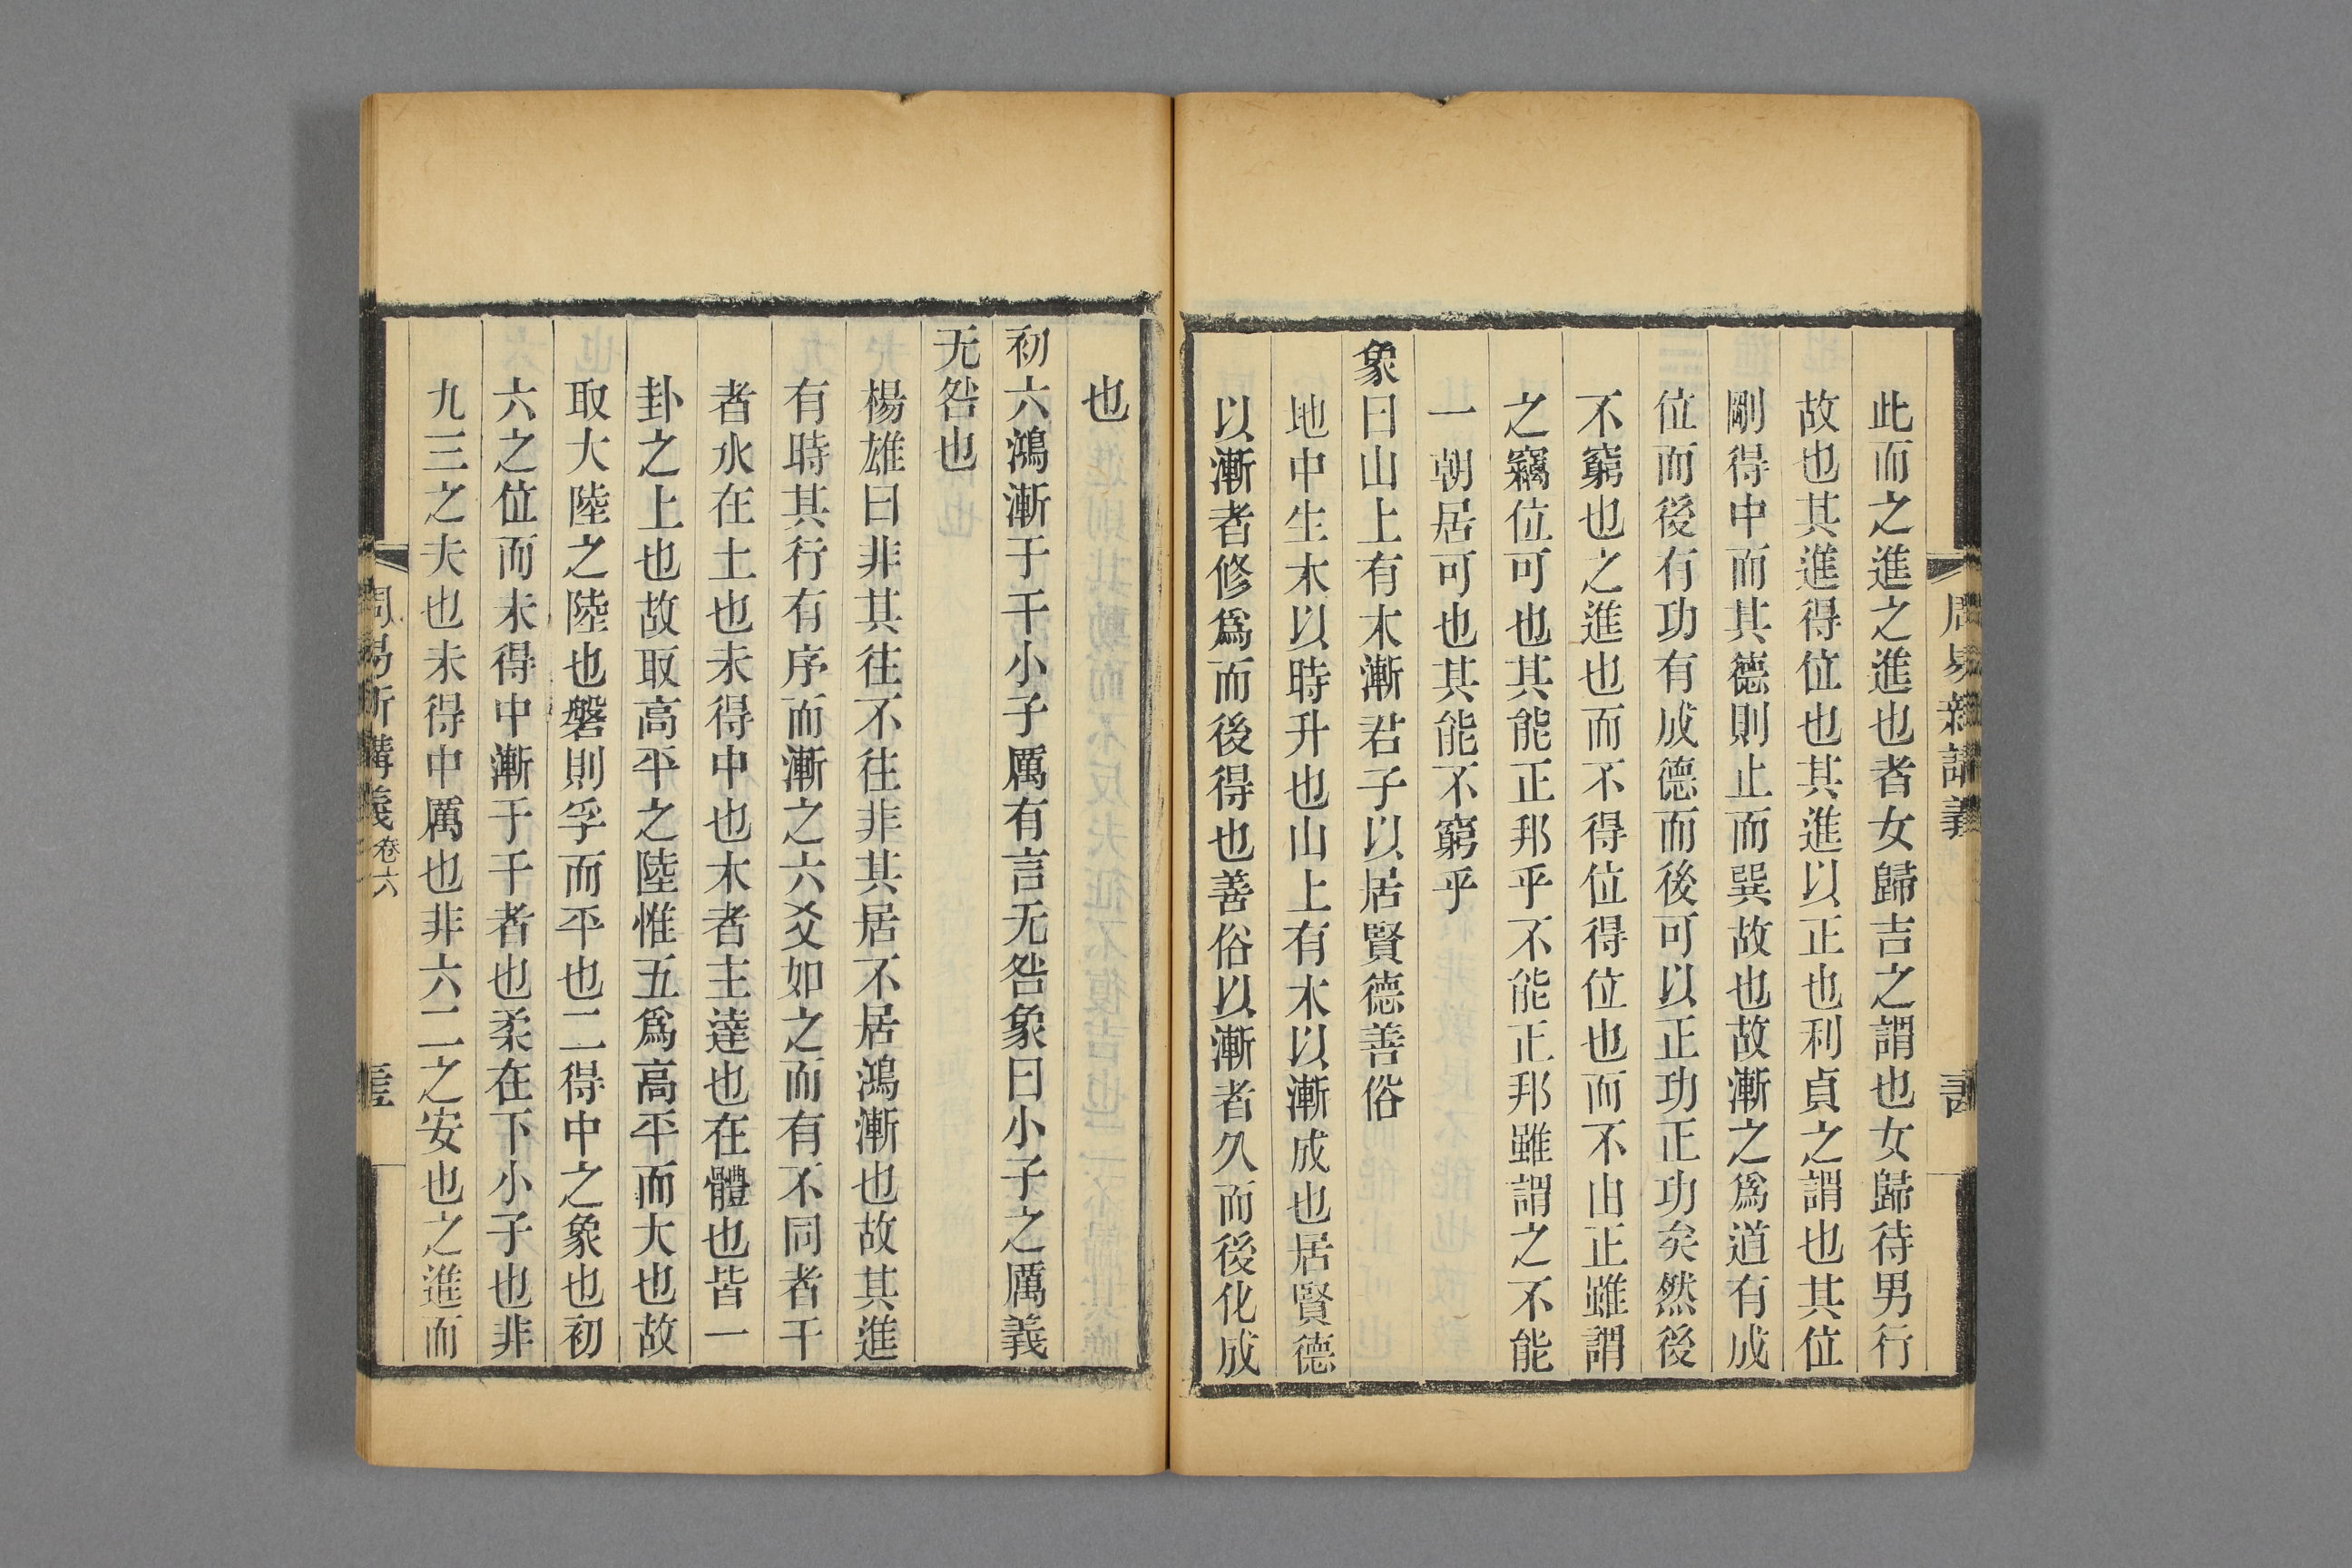 周易新講義
此而之進之進也者女歸吉之謂也女歸待男行
故也其進得位也其進以正也利貞之謂也其位
剛得中而其德則止而巽故也故漸之爲道有成
位而後有功有成德而後可以正功正功矣然後
不窮也之進也而不得位得位也而不由正雖謂
之竊位可也其能正邦乎不能正邦雖謂之不能
一朝居可也其能不窮乎
象曰山上有木漸君子以居賢德善俗
地中生木以時升也山上有木以漸成也居賢德
以漸者修爲而後得也善俗以漸者久而後化成
也
初六鴻漸于干小子厲有言无咎象曰小子之厲義
无咎也
楊雄曰非其往不往非其居不居鴻漸也故其進
有時其行有序而漸之六爻如之而有不同者干
者水在土也未得中也木者主達也在體也皆一
卦之上也故取高平之陸惟五爲高平而大也故
取大陸之陸也磐則孚而平也二得中之象也初
六之位而未得中漸于干者也柔在下小子也非
九三之夫也未得中厲也非六二之安也之進而
周易新講義 卷六